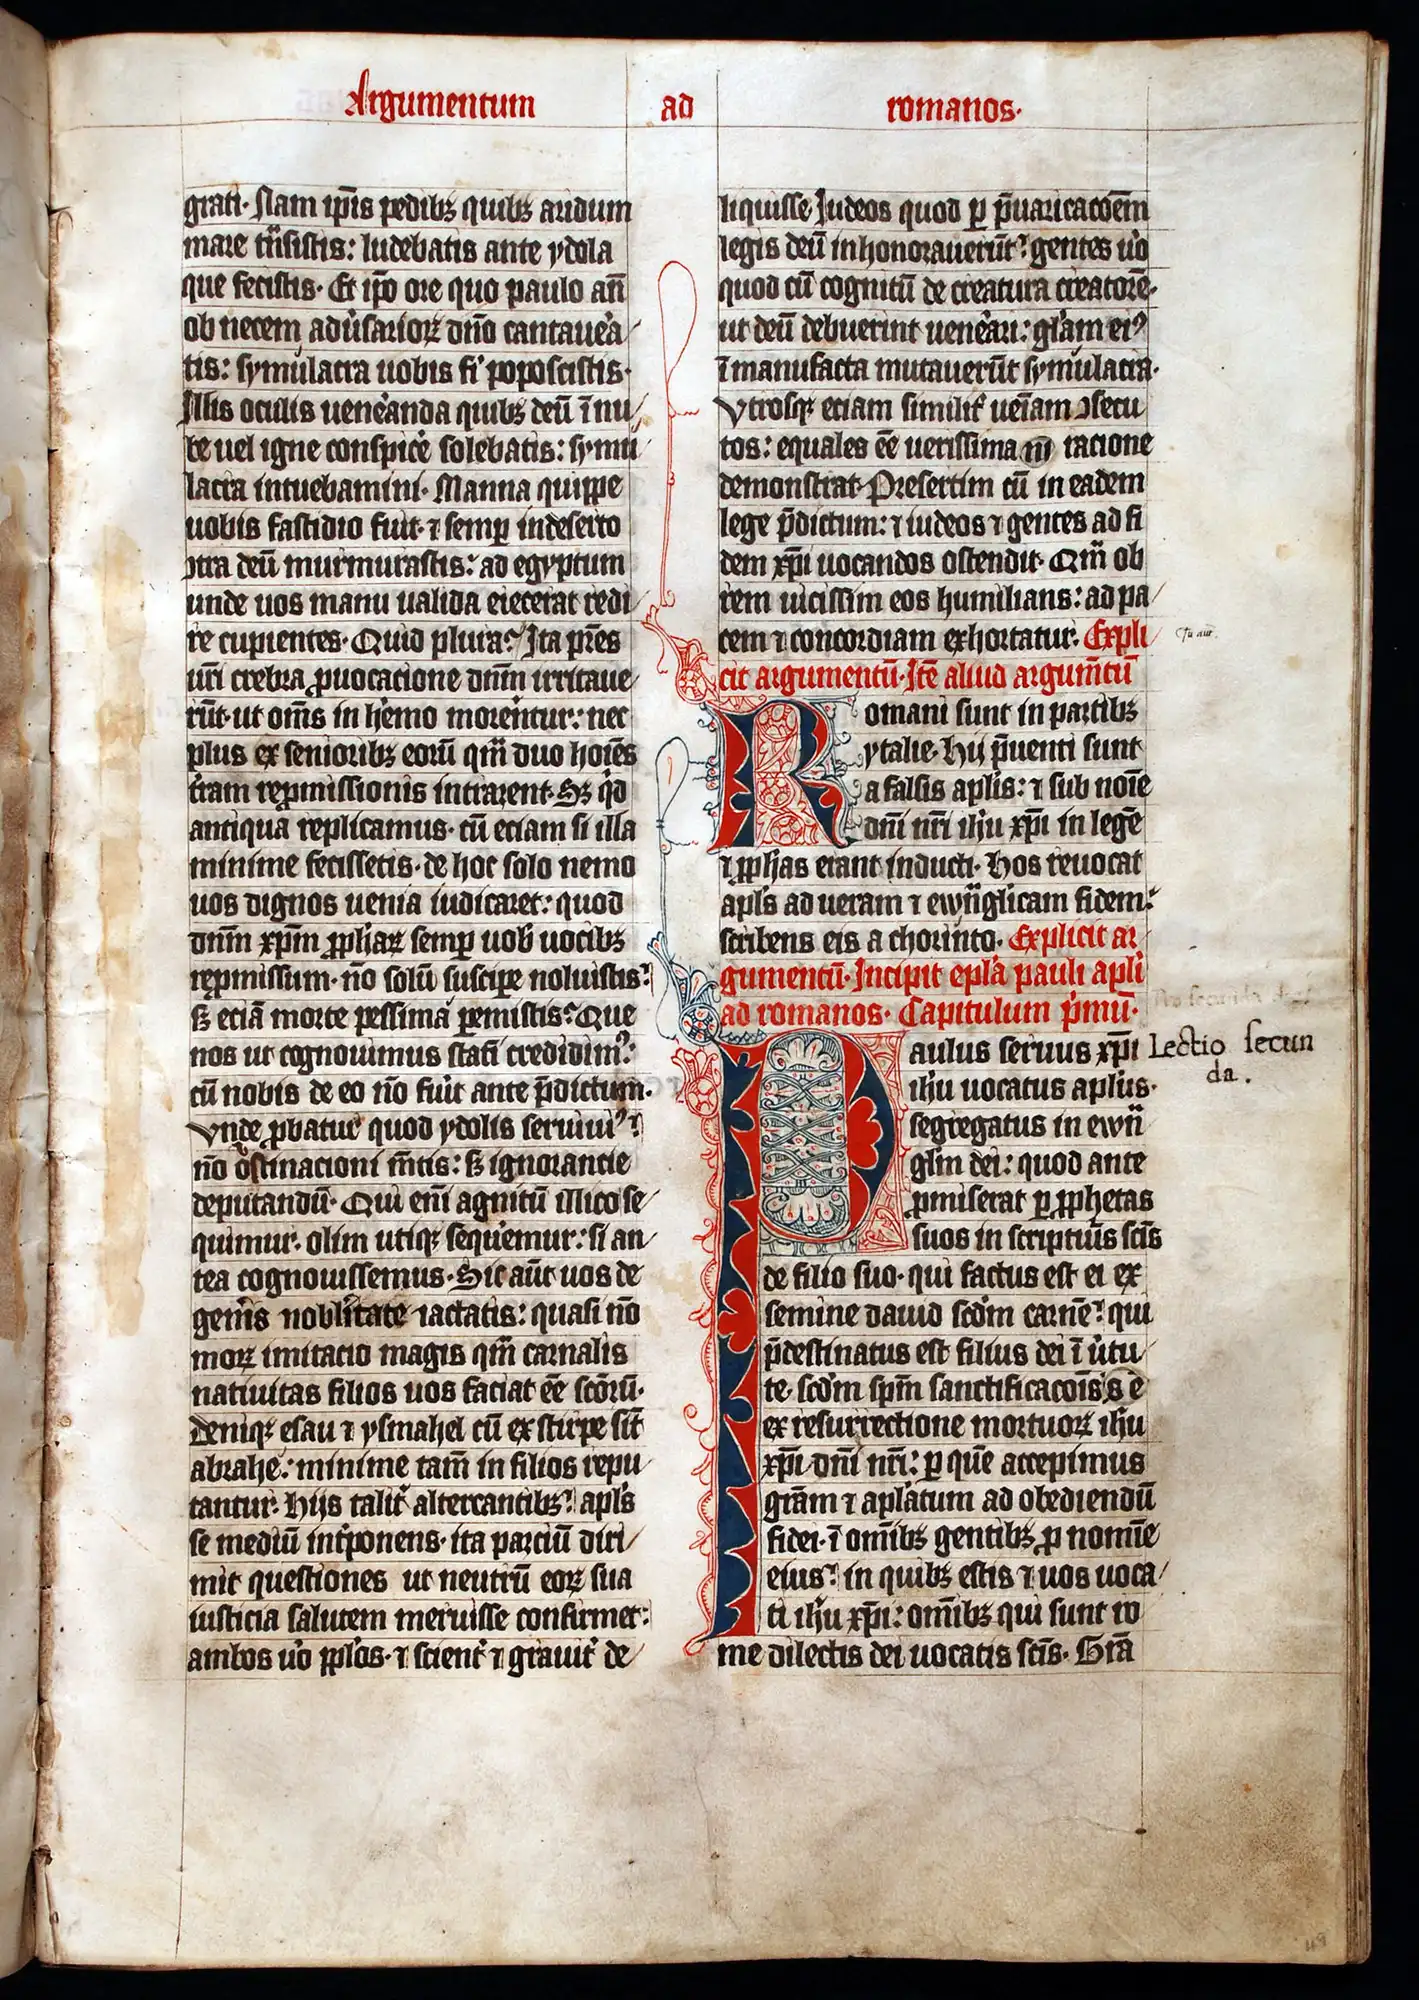 Argumentum ad romanos·
grati· Nam ip̅is pedibꝫ quibꝫ aridum
mare tͣnsistis: ludebatis ante ydola
que fecistis· Et ip̅o ore quo paulo an̅
ob necem adu̾sarioꝝ dn̅o cantaue̾a/
tis: symulacra uobis fi̾ poposcistis·
Illis oculis uene̾anda quibꝫ deu̅ i̅ nu/
be uel igne conspice̾ solebatis: symu/
lacra intuebamini· Manna quippe
uobis fastidio fuit· ⁊ semꝑ in deserto
ꝯtra deu̅ murmurastis: ad egyptum
unde uos manu ualida eiecerat redi/
re cupientes· Quid plura? Ita pr̅es
ur̅i crebra ꝓuocacione dn̅m irritaue/
ru̅t· ut om̅s in he̾mo more̾ntur: nec
plus ex senioribꝫ eoru̅ qͣm duo ho̅i̅es
tr̾am rep̱missionis intrarent· Sꝫ qͥd
antiqua replicamus· cu̅ eciam si illa
minime fecissetis· de hoc solo nemo
uos dignos uenia iudicaret: quod
dn̅m xp̅m ꝓph̾aꝝ semꝑ uob̾ uocibꝫ
reꝓmissum· no̅ solu̅ suscipe̾ noluistis?
sꝫ ecia̅ morte pessima ꝑemistis? Que
nos ut cognouimus stati̅ credidim᷒:
cu̅ nobis de eo no̅ fu̾it ante p̅dictum·
Vnde ꝓbatur quod ydolis seruiui᷒?
no̅ obstinacioni m̅tis: sꝫ ignorancie
deputandu̅· Qui eni̅ agnitu̅ illico se/
quimur· olim utiqꝫ seque̾mur: si an/
tea cognouissemus· Sic au̅t uos de
gene̾is nobli̾tate iactatis: quasi no̅
moꝝ imitacio magis qͣm carnalis
natiuitas filios uos faciat e̅e sc̅oru̅·
Deniqꝫ esau ⁊ ysmahel cu̅ ex stirpe si̅t
abrahe: minime tam̅ in filios repu/
tantur· Hijs tali̾t altercantibꝫ: apl̅s
se mediu̅ int̾ponens· ita parciu̅ diri/
mit questiones ut neutru̅ eoꝝ sua
iusticia salutem meruisse confirmet:
ambos u̾o ppl̅os· ⁊ scient̾ ⁊ grauit̾ de/
liquisse· Iudeos quod ꝑ p̅uaricaco̅em
legis deu̅ inhonorauerunt? gentes u̾o
quod cu̅ cognitu̅ de creatura creatore̅·
ut deu̅ debuerint uene̾ari: glͣam ei᷒
i̅ manufacta mutaueru̅t symulacra·
Vtrosqꝫ eciam simili̾t uei̅am ꝯsecu
tos: equales e̅e uerissima m̅ racione
demonstrat· Presertim cu̅ in eadem
lege p̅dictum: ⁊ iudeos ⁊ gentes ad fi
dem xp̅i uocandos ostendit· Qm̅ ob
rem uicissim eos humilians: ad pa/
cem ⁊ concordiam exhortatur· Expli/
cit argumentu̅· Ite̅ aliud argum̅tu̅
Romani sunt in partibꝫ
ytalie· Hij p̅uenti sunt
a falsis apl̅is: ⁊ sub no̅i̅e
dn̅i nr̅i ih̅u xp̅i in lege̅
⁊ ꝓph̅as erant inducti· Hos reuocat
apl̅s ad ueram ⁊ ewu̅glicam fidem:
scribens eis a chorinto· Explicit ar
gumentu̅· Incipit epl̅a pauli apl̅i
ad romanos· Capitulum p̾mu̅·
Paulus seruus xp̅i
ih̅u uocatus apl̅us·
segregatus in ewu̅
gl̅m dei: quod ante
ꝓmiserat ꝑ ꝓphetas
suos in scriptu̾is sc̅is
de filio suo· qui factus est ei ex
semine dauid sc̅dm carne̅: qui
p̅destinatus est filius dei i̅ u̾tu/
te· sc̅dm sp̅m sanctificaco̅is e̅
ex resurrectione mortuoꝝ ih̅u
xp̅i dn̅i nr̅i: ꝑ que̅ accepimus
gra̅m ⁊ apl̅atum ad obediendu̅
fidei· i̅ om̅ibꝫ gentibꝫ ꝓ nomi̅e
eius: in quibꝫ estis ⁊ uos uoca/
ti ih̅u xp̅i: om̅ibꝫ qui sunt ro
me dilectis dei uocatis sc̅is· Gra̅
Lectio secun
da.